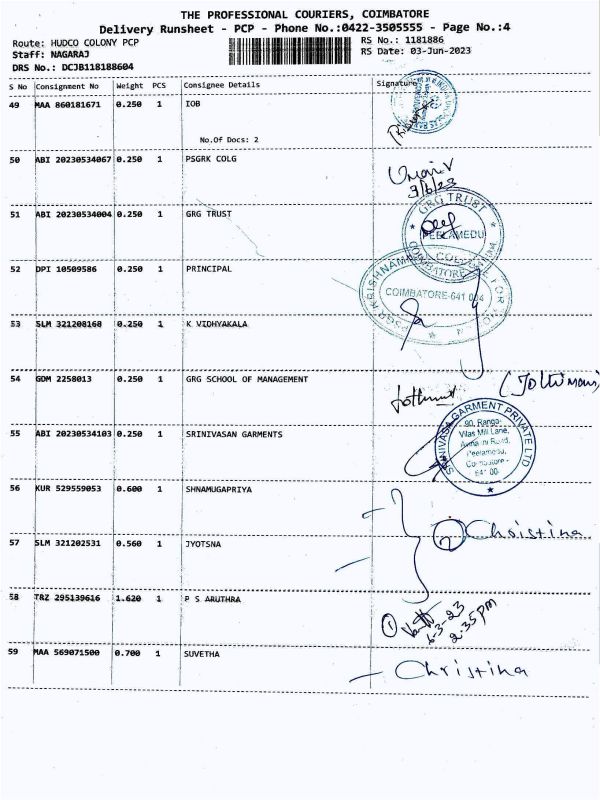 THE PROFESSIONAL COURIERS, COIMBATORE
Delivery Runsheet - PCP - Phone No.:0422-3505555 - Page No.:4
Route: HUDCO COLONY PCP RS No.: 1181886
Staff: NAGARAJ RS Date: 03-Jun-2023
DRS No.: DCJB118188604
S No Consignment No Weight PCS Consignee Details Signature
49 MAA 860181671 0.250 1 IOB
No.Of Docs: 2
50 ABI 20230534067 0.250 1 PSGRK COLG
3/6/23
51 ABI 20230534004 0.250 1 GRG TRUST
GRG TRUST
PEELAMEDU
COIMBATORE
52 DPI 10509586 0.250 1 PRINCIPAL
PSGR KRISHNAMMAL COLLEGE FOR WOMEN
COIMBATORE-641 004
53 SLM 321208168 0.250 1 K VIDHYAKALA
54 GDM 2258013 0.250 1 GRG SCHOOL OF MANAGEMENT
(Jothimani)
55 ABI 20230534103 0.250 1 SRINIVASAN GARMENTS
SRINIVASA GARMENT PRIVATE LTD
90, Ranga-
Vilas Mill Lane,
Road,
Peelamedu,
Coimbatore -
56 KUR 529559053 0.600 1 SHNAMUGAPRIYA
2 Christina
57 SLM 321202531 0.560 1 JYOTSNA
58 TRZ 295139616 1.620 1 P S ARUTHRA
1
6-3-23
2.35pm
59 MAA 569071500 0.700 1 SUVETHA
- Christina